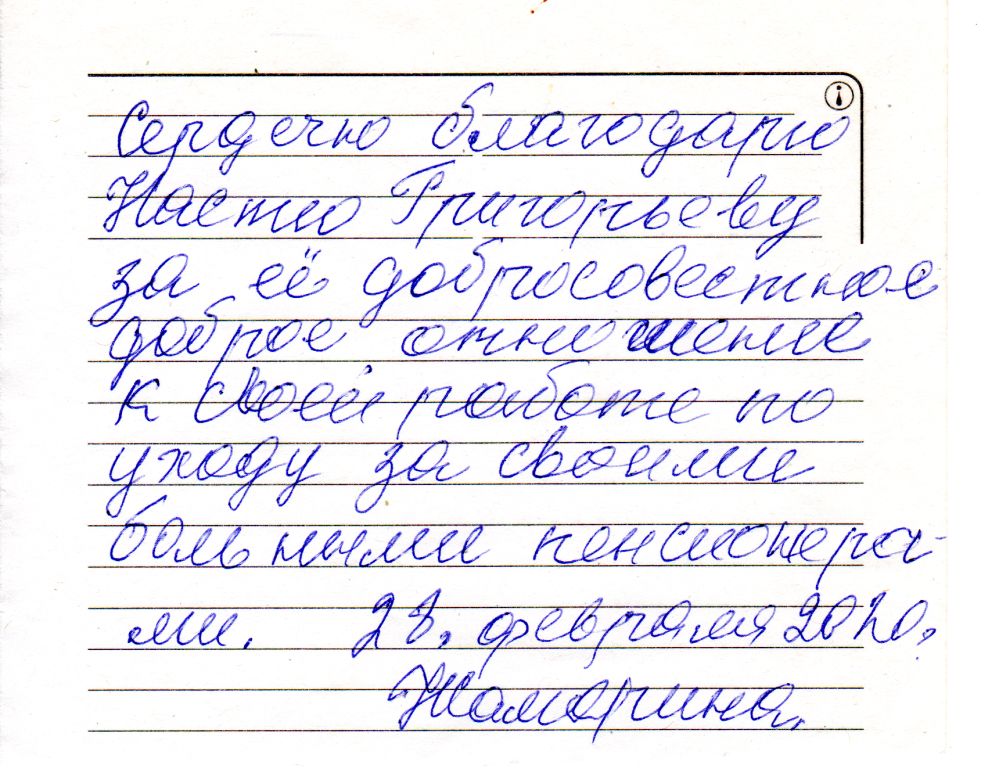 Сердечно благодарю
Настю Григорьеву
за её добросовестное
доброе отношение
к своей работе по
уходу за своими
больными пенсионера-
ми. 28. февраля 2020.